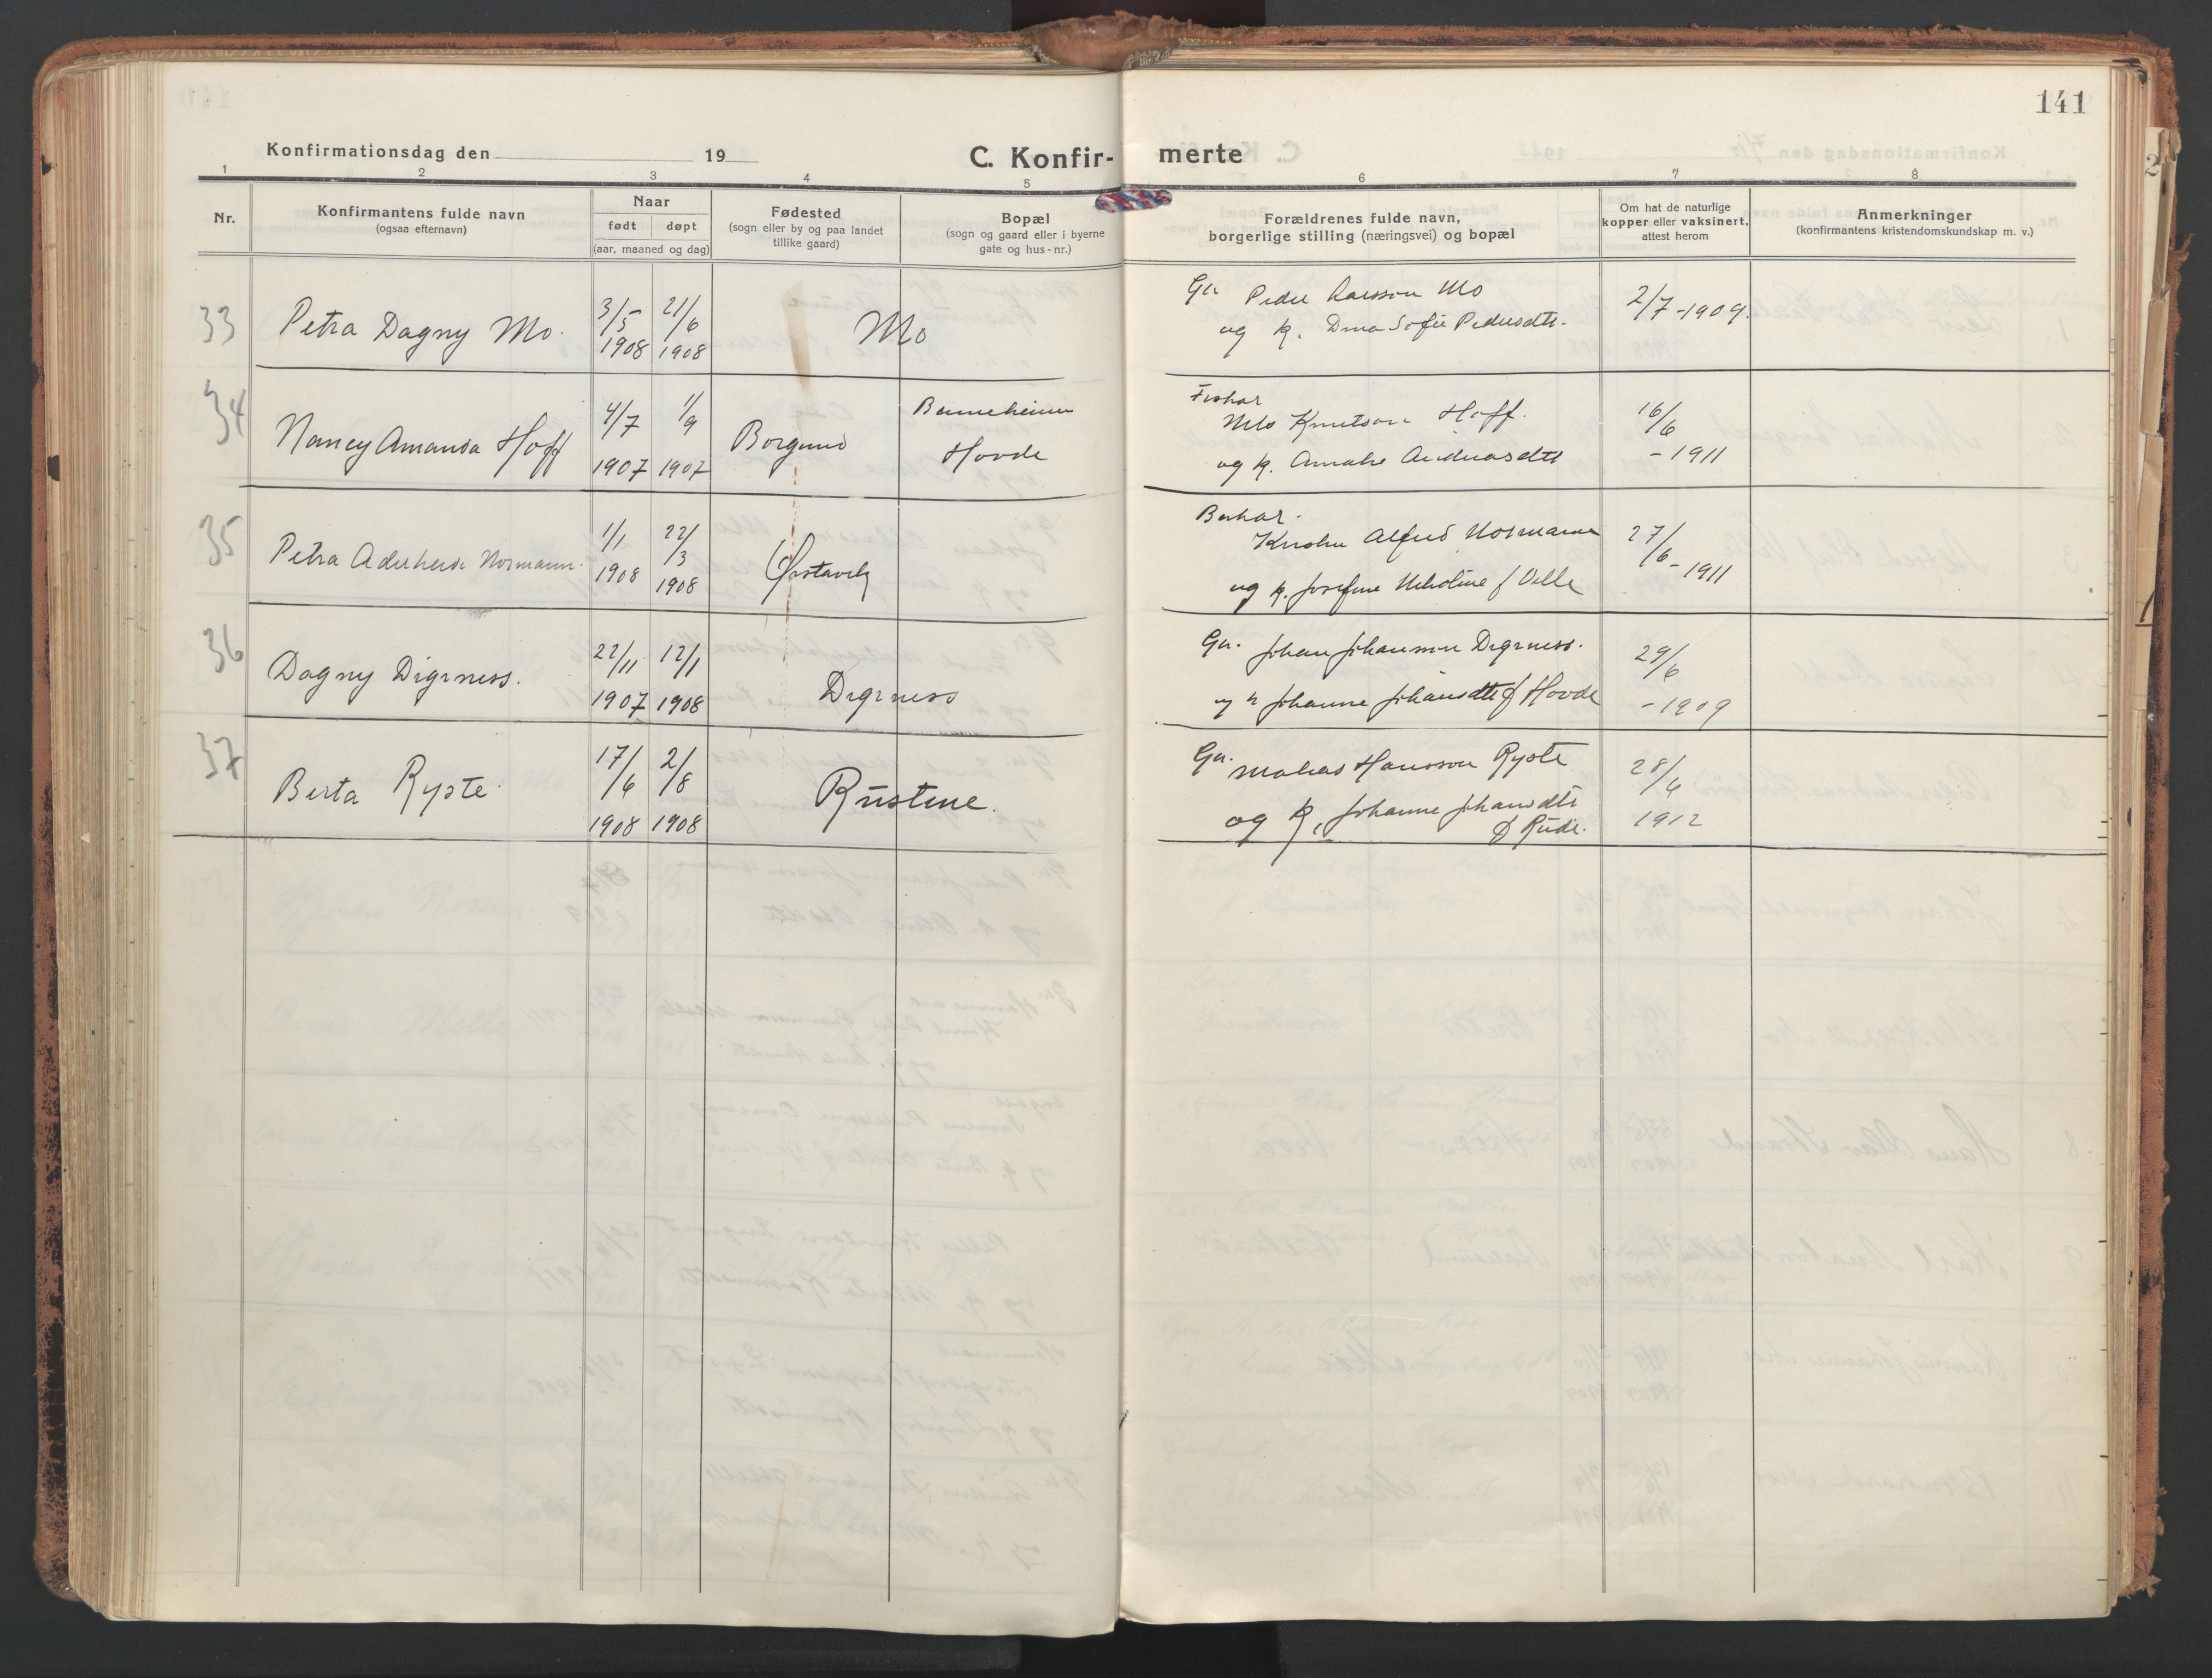 141
Konfirmationsdag den 19
C. Konfir- merte
1 2 3 4 5 6 7 8
Nr.
Konfirmantens fulde navn
(ogsaa efternavn)
Naar
født døpt
(aar, maaned og dag)
Fødested
(sogn eller by og paa landet
tillike gaard)
Bopæl
(sogn og gaard eller i byerne
gate og hus-nr.)
Forældrenes fulde navn,
borgerlige stilling (næringsvei) og bopæl
Om hat de naturlige
kopper eller vaksinert,
attest herom
Anmerkninger
(konfirmantens kristendomskundskap m. v.)
33 Petra Dagny Mo. 3/5 1908 21/6 1908 Mo
Ga Peder Larsson Mo
og k. Sofie Pedersdtr.
2/7-1909.
34 Nancy Amanda Hoff 4/7 1907 1/9 1907 Borgund
Hovde
Fiskar
Nils Knutson Hoff.
og k. Amalie
16/6 -1911
35 Petra Normann. 1/1 1908 22/3 1908 Ørstavik
Alfred Normann
og k. Josefine
27/6-1911
36 Dagny Digrness. 22/11 1907 12/1 1908 Digrness
Ga. Johan Johannson Digrness.
og k Johanne Johansdtr f Hovde
29/6 -1909
37 Berta Ryste. 17/6 1908 2/8 1908 Rustene.
Ga. Matias Hansson Ryste
og k, Johanne Johansdtr
f Rude.
28/6 1912